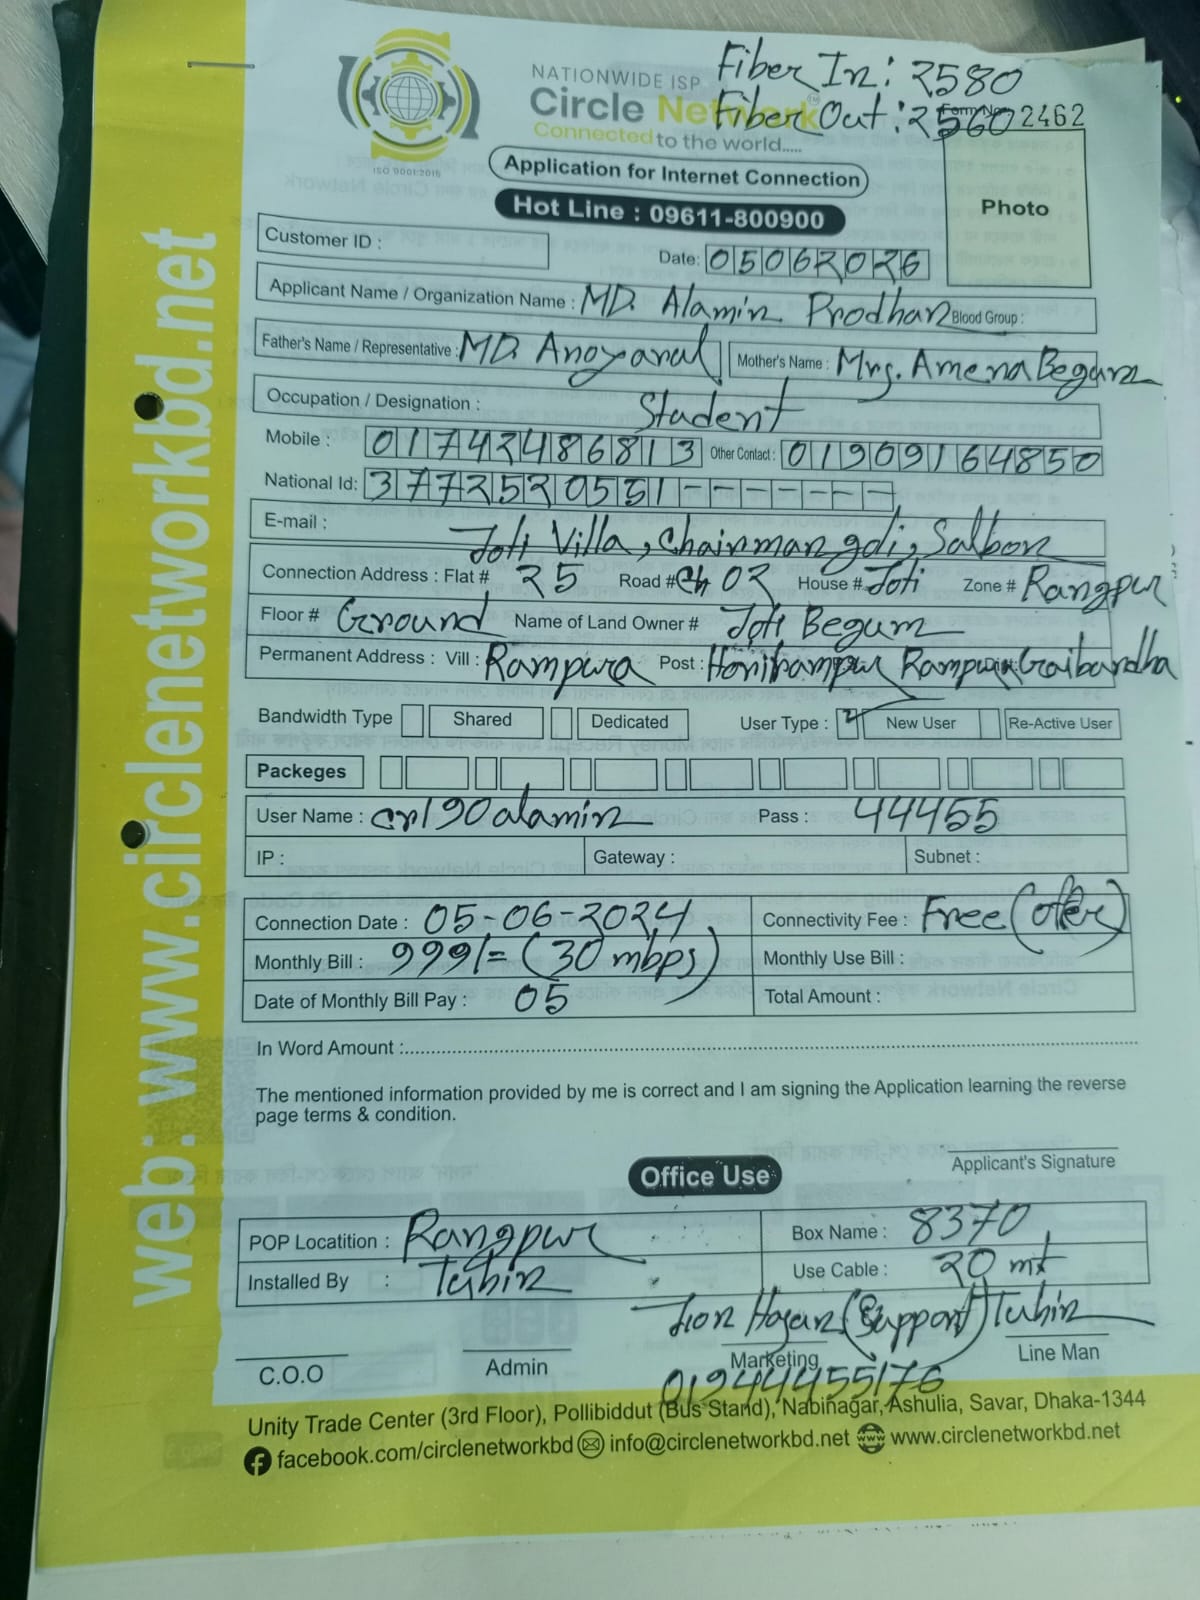 Fiber In: 2580
NATIONWIDE ISP
Circle Network
Fiber Out: 2560
Form No. 2462
Connected to the world.....
ISO 9001:2015
Application for Internet Connection
Hot Line : 09611-800900
Photo
Customer ID :
Date: 05062026
Applicant Name / Organization Name : MD. Alamin Prodhan Blood Group :
Father's Name / Representative : MD. Anoyarul Mother's Name : Mrs. Amena Begum
Occupation / Designation : Student
Mobile : 01742486813 Other Contact : 01909164850
National Id: 3772520551 - - - - - - -
E-mail :
Joti Villa, Chairman goli, Salbon
Connection Address : Flat # 25 Road # 02 House # Joti Zone # Rangpur
Floor # Ground Name of Land Owner # Joti Begum
Permanent Address : Vill : Rampura Post : Gaibandha
Bandwidth Type Shared Dedicated User Type : New User Re-Active User
Packeges
User Name : cnl90alamin Pass : 44455
IP : Gateway : Subnet :
Connection Date : 05-06-2024 Connectivity Fee : Free (offer)
Monthly Bill : 999/= (30 mbps) Monthly Use Bill :
Date of Monthly Bill Pay : 05 Total Amount :
In Word Amount :
The mentioned information provided by me is correct and I am signing the Application learning the reverse
page terms & condition.
Applicant's Signature
Office Use
POP Locatition : Rangpur Box Name : 8370
Installed By : Tuhin Use Cable : 20 mt
Hasan (Support) Tuhin
C.O.O Admin Marketing Line Man
Unity Trade Center (3rd Floor), Pollibiddut (Bus Stand), Nabinagar, Ashulia, Savar, Dhaka-1344
facebook.com/circlenetworkbd info@circlenetworkbd.net www.circlenetworkbd.net
web: www.circlenetworkbd.net